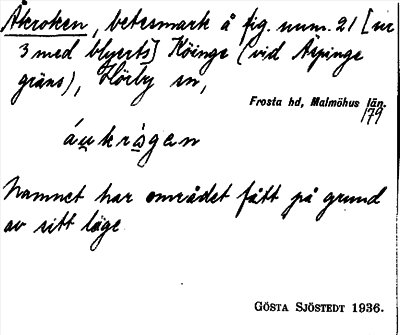 Åkroken, betesmark å fig. num. 21 [nr
3 med blyerts] Köinge (vid Äspinge
gräns), Hörby sn,
Frosta hd, Malmöhus län.
179
áukrǻgen
Namnet har området fått på grund
av sitt läge
GÖSTA SJÖSTEDT 1936.